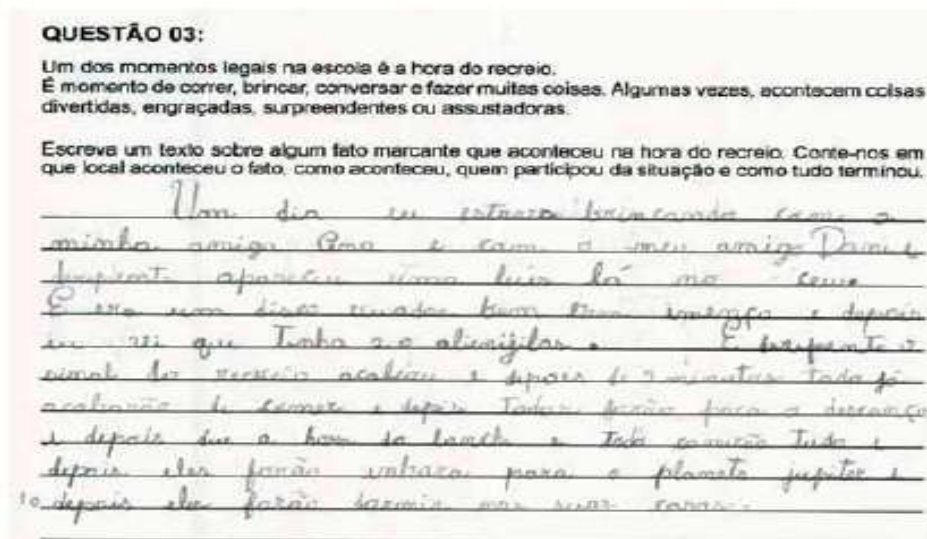 QUESTÃO 03:
Um dos momentos legais na escola é a hora do recreio.
É momento de correr, brincar, conversar e fazer muitas coisas. Algumas vezes, acontecem coisas
divertidas, engraçadas, surpreendentes ou assustadoras.
Escreva um texto sobre algum fato marcante que aconteceu na hora do recreio. Conte-nos em
que local aconteceu o fato, como aconteceu, quem participou da situação e como tudo terminou.
Um dia eu estava brincando com a
minha amiga Ana e com o meu amigo Dani e
derepente apareceu uma luis lá no ceu
E era um disco voador bem imenço e depois
eu vi que Tinha 20 alienijilas. E derepente o
sinal do recreio acabou e depois de 2 minutos todo já
acabarão de comer e depois Todos forão para o descanço
e depois foi a hora do lanch e Todo comerão Tudo e
depois eles forão para o planeta jupiter e
10 depois eles forão dormir nas suas casas.